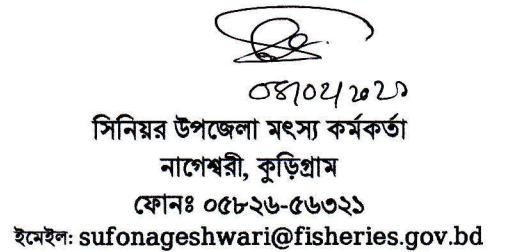 ০৪/০২/২০২১
সিনিয়র উপজেলা মৎস্য কর্মকর্তা
নাগেশ্বরী, কুড়িগ্রাম
ফোনঃ ০৫৮২৬-৫৬৩২১
ইমেইল: sufonageshwari@fisheries.gov.bd